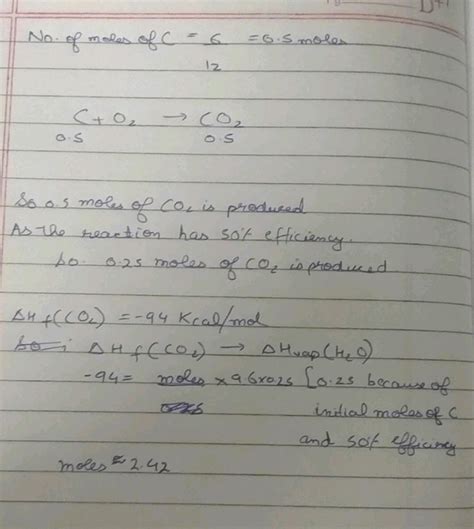 No. of moles of C = 6 = 0.5 moles
12
C + O2 → CO2
0.5 0.5
So 0.5 moles of CO2 is produced
As the reaction has 50% efficiency.
So. 0.25 moles of CO2 is produced
ΔHf(CO2) = -94 Kcal/mol
So ; ΔHf(CO2) → ΔHvap(H2O)
-94 = moles × 9.6×0.25 [0.25 because of
initial moles of C
and 50% efficiency
moles = 2.42